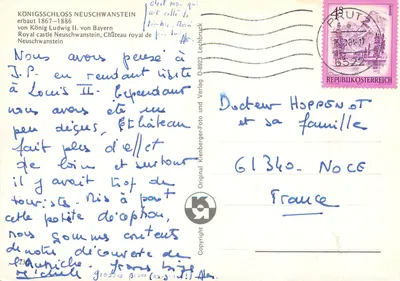 KÖNIGSSCHLOSS NEUSCHWANSTEIN
erbaut 1867–1886
von König Ludwig II. von Bayern
Royal castle Neuschwanstein, Château royal de
Neuschwanstein
Nous avons pensé à
J.P. en rendant visite
à Louis II. Cependant
nous avons été un
peu déçus, le château
fait plus d'effet
de loin et surtout
il y avait trop de
touristes. Mis à part
cette petite déception,
nous sommes contents
de notre découverte de
l'Autriche.
Original Kienberger-Foto und Verlag D-8923 Lechbruck
Copyright
PRUTZ
6522
S
REPUBLIK ÖSTERREICH
Docteur HOPPENOT
et sa famille
61340. NOCE
France